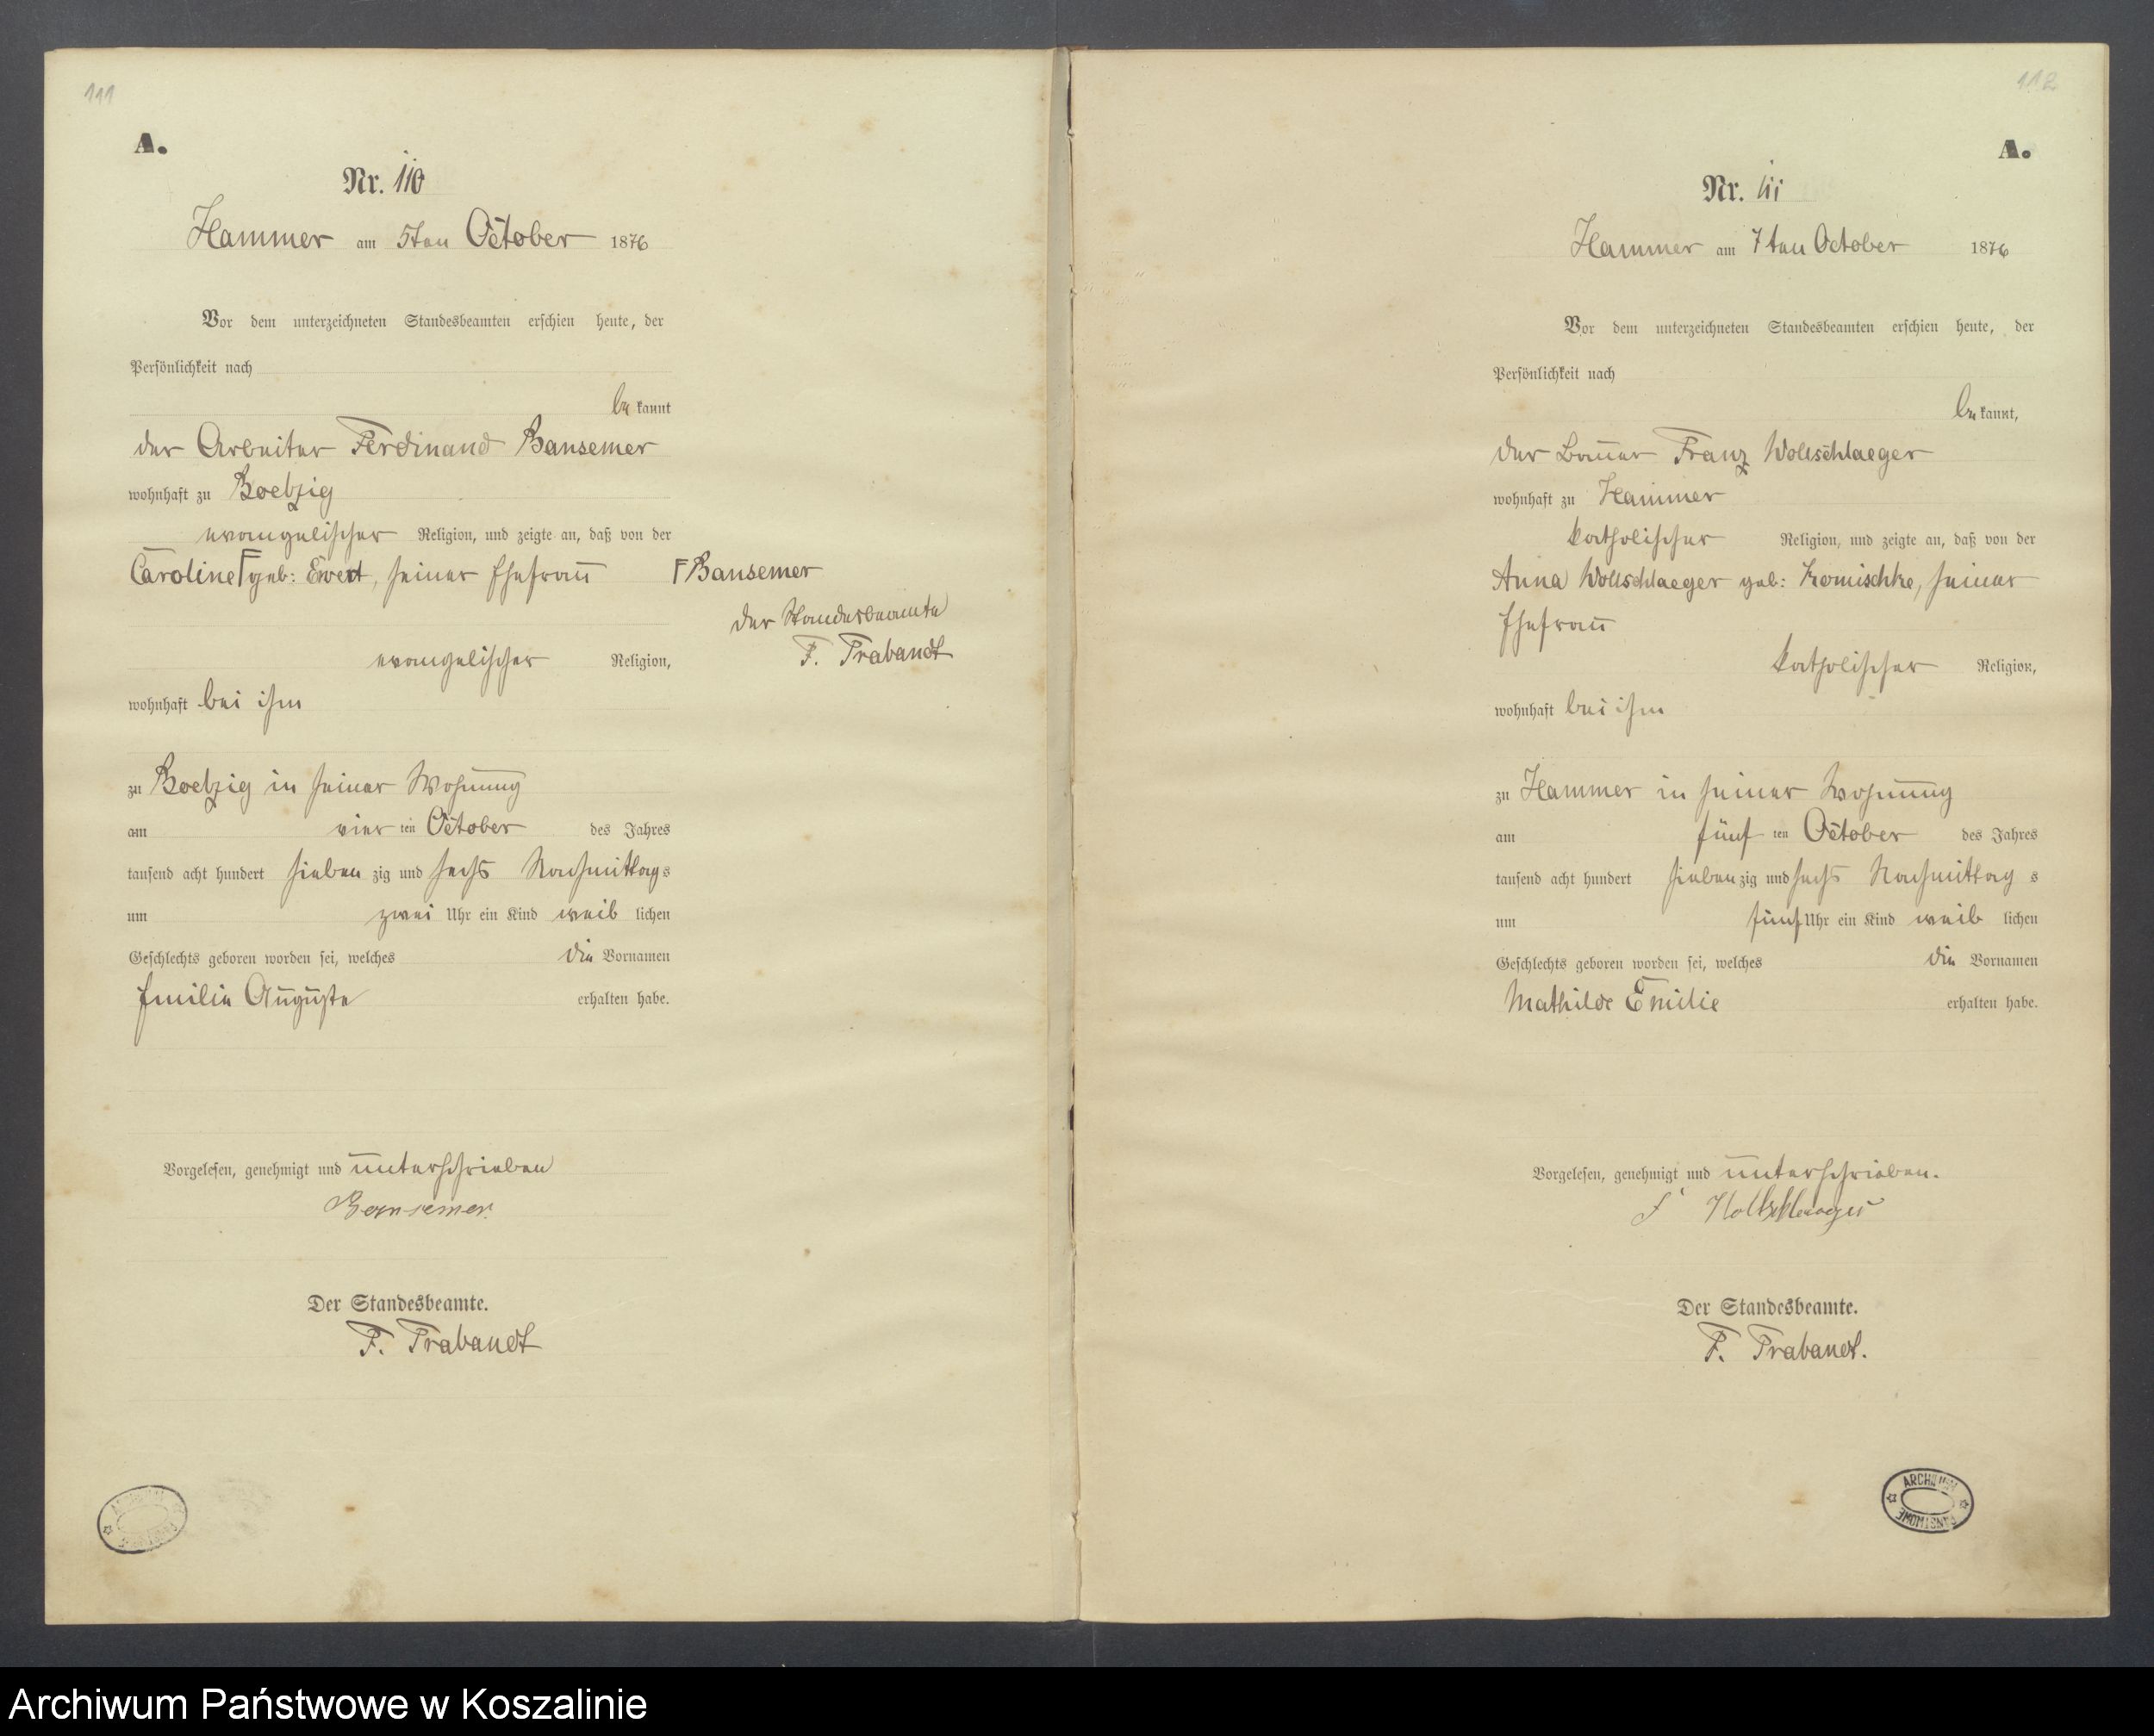 111
A.
Nr. 110
Hammer am 5ten October 1876
Vor dem unterzeichneten Standesbeamten erschien heute, der
Persönlichkeit nach
be kannt
der Arbeiter Ferdinand Bansemer
wohnhaft zu Boetzig
evangelischer Religion, und zeigte an, daß von der
Caroline Γ geb: Ewert, seiner Ehefrau
Γ Bansemer
der Standesbeamte
F. Trabandt
evangelischer Religion,
wohnhaft bei ihm
zu Boetzig in seiner Wohnung
am vier ten October des Jahres
tausend acht hundert sieben zig und sechs Nachmittag s
um zwei Uhr ein Kind weib lichen
Geschlechts geboren worden sei, welches die Vornamen
Emilie Auguste erhalten habe.
Vorgelesen, genehmigt und unterschrieben
Bansemer
Der Standesbeamte.
F. Trabandt
112
A.
Nr. 111
Hammer am 7ten October 1876
Vor dem unterzeichneten Standesbeamten erschien heute, der
Persönlichkeit nach
be kannt,
der Bauer Franz Wollschlaeger
wohnhaft zu Hammer
katholischer Religion, und zeigte an, daß von der
Anna Wollschlaeger geb: Komischke, seiner
Ehefrau
katholischer Religion,
wohnhaft bei ihm
zu Hammer in seiner Wohnung
am fünf ten October des Jahres
tausend acht hundert sieben zig und sechs Nachmittag s
um fünf Uhr ein Kind weib lichen
Geschlechts geboren worden sei, welches die Vornamen
Mathilde Emilie erhalten habe.
Vorgelesen, genehmigt und unterschrieben.
F Wollschlaeger
Der Standesbeamte.
F. Trabandt.
ARCHIWUM
PAŃSTWOWE
Archiwum Państwowe w Koszalinie